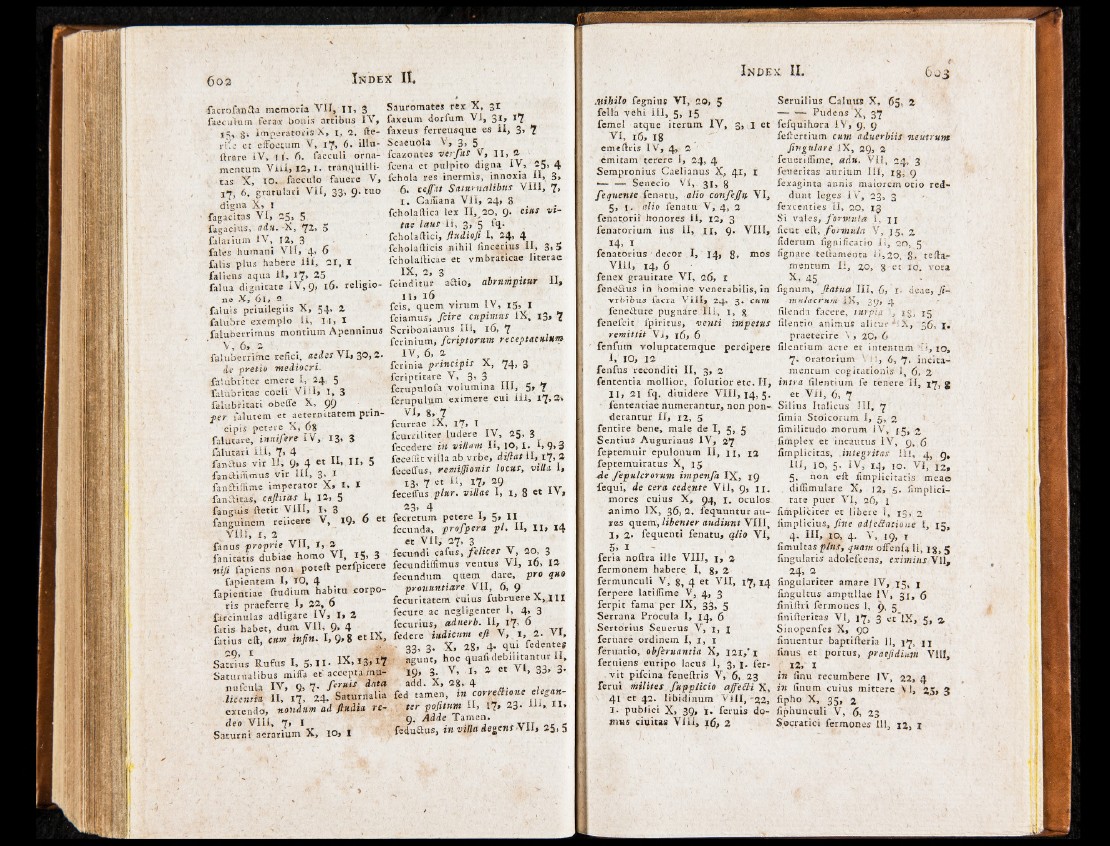 602 INDEX II.
ſacroſancta memoria VII, 11, 3
ſaeculum ferax bonis artibus IV,
15, 8. imperatoris X, 1, 2. ſte-
rile et effoetum V, 17, 6. illu-
ſtrare IV, 11. 6. ſaeculi orna-
mentum VIII, 12, 1. tranquilli-
tas X, 10. ſaeculo fauere V,
17, 6. gratulari VII, 33, 9. tuo
digna X, 1
ſagacitas VI, 25, 5
ſagacius, adu. X, 72, 5
ſalarium IV, 12, 3
ſales humani VII, 4, 6
ſalis plus habere III, 21, 1
ſaliens aqua II, 17, 25
ſalua dignitate IV, 9, 16. religio-
ne X, 61, 2
ſaluis priuilegiis X, 54, 2
ſalubre exemplo II, 14, 1
ſaluberrimus montium Apenninus
V, 6, 2
ſaluberrime refici, aedes VI, 30, 2.
de pretio mediocri.
ſalubriter emere I, 24, 5
ſalubritas coeli VIII, 1, 3
ſalubritati obeſſe X, 99
per ſalutem et aeternitatem prin-
cipis petere X, 68
ſalutare, inuiſere IV, 13, 3
ſalutari III, 7, 4
ſanctus vir II, 9, 4 et II, 11, 5
ſanctiſſimus vir III, 3, 1
ſanctiſſime imperator X, 1, 1
ſanctitas, caſtitas I, 12, 5
ſanguis ſtetit VIII, 1, 3
ſanguinem reiicere V, 19, 6 et
VIII, 1, 2
ſanus proprie VII, 1, 2
ſanitatis dubiae homo VI, 15, 3
niſi ſapiens non poteſt perſpicere
ſapientem I, 10, 4
ſapientiae ſtudium habitu corpo-
ris praeferre I, 22, 6
ſarcinulas adligare IV, 1, 2
ſatis habet, dum VII, 9, 4
ſatius eſt, cum infin. I, 9, 8 et IX,
29, 1
Satrius Rufus I, 5, 11. IX, 13, 17
Saturnalibus miſſa et accepta mu-
nuſcula IV, 9, 7. ſeruis data
licentia II, 17, 24. Saturnalia
extendo, nondum ad ſtudia re-
deo VIII, 7, 1
Saturni aerarium X, 10, 1
Sauromates rex X, 31
ſaxeum dorſum VI, 31, 17
ſaxeus ferreusque es II, 3, 7
Scaeuola V, 3, 5
ſcazontes verſus V, 11, 2
ſcena et pulpito digna IV, 25, 4
ſchola res inermis, innoxia II, 3,
6. ceſſat Saturnalibus VIII, 7,
1. Caſſiana VII, 24, 8
ſcholaſtica lex II, 20, 9. eius vi-
tae laus II, 3, 5 ſq.
ſcholaſtici, ſtudioſi I, 24, 4
ſcholaſticis nihil ſincerius II, 3, 5
ſcholaſticae et vmbraticae literae
IX, 2, 3
ſcinditur actio, abrumpitur II,
11, 16
ſcis, quem virum IV, 15, 1
ſciamus, ſcire cupimus IX, 13, 7
Scribonianus III, 16, 7
ſcrinium, ſcriptorum receptaculum
IV, 6, 2
ſcrinia principis X, 74, 3
ſcriptitare V, 3, 3
ſcrupuloſa volumina III, 5, 7
ſcrupulum eximere cui III, 17, 2.
VI, 8, 7
ſcurrae IX, 17, 1
ſcurriliter ludere IV, 25, 3
ſecedere in villam II, 10, 1. I, 9, 3
ſeceſſit villa ab vrbe, diſtat II, 17, 2
ſeceſſus, remiſſionis locus, villa I,
13, 7 et II, 17, 29
ſeceſſus plur. villae I, 1, 8 et IV,
23, 4
ſecretum petere I, 5, 11
ſecunda, proſpera pl. II, 11, 14
et VII, 27, 3
ſecundi caſus, felices V, 20, 3
ſecundiſſimus ventus VI, 16, 12
ſecundum quem dare, pro quo
pronuntiare VII, 6, 9
ſecuritatem cuius ſubruere X, 111
ſecure ac negligenter I, 4, 3
ſecurius, aduerb. II, 17, 6
ſedere iudicum eſt V, 1, 2. VI,
33, 3. X, 28, 4. qui ſedentes
ngunt, hoc quaſi debilitantur II,
19, 3. V, 1, 2 et VI, 33, 3.
add. X, 28, 4
ſed tamen, in correctione elegan-
ter poſitum II, 17, 23. III, 11,
9. Adde Tamen.
ſeductus, in villa degens VII, 25, 5
INDEX II. 603
nihilo ſegnius VI, 20, 5
ſella vehi III, 5, 15
ſemel atque iterum IV, 3, 1 et
VI, 16, 18
emeſtris IV, 4, 2
emitam terere I, 24, 4
Sempronius Caelianus X, 41, 1
— — Senecio VI, 31, 8
ſequente ſenatu, alio conſeſſu VI,
5, 1. alio ſenatu V, 4, 2
ſenatorii honores II, 12, 3
ſenatorium ius II, 11, 9. VIII,
14, 1
ſenatorius decor I, 14, 8. mos
VIII, 14, 6
ſenex grauitate VI, 26, 1
ſenectus in homine venerabilis, in
vrbibus ſacra VIII, 24, 3. cum
ſenecture pugnare III, 1, 8
ſeneſcit ſpiritus, venti impetus
remittit VI, 16, 6
ſenſum voluptatemque percipere
I, 10, 12
ſenſus reconditi II, 3, 2
ſententia mollior, ſolutior etc. II,
11, 21 ſq. diuidere VIII, 14, 5.
ſententiae numerantur, non pon-
derantur II, 12, 5
ſentire bene, male de I, 5, 5
Sentius Augurinus IV, 27
ſeptemuir epulonum II, 11, 12
ſeptemuiratus X, 15
de ſepulcrorum impenſa IX, 19
ſequi, de cera cedente VII, 9, 11.
mores cuius X, 94, 1. oculos
animo IX, 36, 2. ſequuntur au-
res quem, libenter audiunt VIII,
1, 2. ſequenti ſenatu, alio VI,
5, 1
ſeria noſtra ille VIII, 1, 2
ſermonem habere I, 8, 2
ſermunculi V, 8, 4 et VII, 17, 14
ſerpere latiſſime V, 4, 3
ſerpit fama per IX, 33, 5
Serrana Procula I, 14, 6
Sertorius Seuerus V, 1, 1
ſeruare ordinem I, 1, 1
ſeruatio, obſeruantia X, 121, 1
ſeruiens euripo lacus I, 3, 1. ſer-
vit piſcina feneſtris V, 6, 23
ſerui milites ſupplicio affecti X,
41 et 42. libidinum VIII, 22,
1. publici X, 39, 1. ſeruis do-
mus ciuitas VIII, 16, 2
Seruilius Caluus X, 65, 2
— — Pudens X, 37
ſeſquihora IV, 9, 9
ſeſtertium cum aduerbiis neutrum
ſingulare IX, 29, 2
ſeueriſſime, adu. VII, 24, 3
ſeueritas aurium III, 18, 9
ſexaginta annis maiorem otio red-
dunt leges IV, 23, 3
ſexcenties II, 20, 13
Si vales, formula I, 11
ſicut eſt, formula V, 15, 2
ſiderum ſignificatio II, 20, 5
ſignare teſtamenta II, 20, 8. teſta-
mentum II, 20, 8 et 10. vota
X, 45
ſignum, ſtatua III, 6, 1. deae, ſi-
mulacrum IX, 39, 4
ſilenda facere, turpia I, 18, 15
ſilentio animus alitur IX, 36, 1.
praeterire V, 20, 6
ſilentium acre et intentum II, 10,
7. oratorium VII, 6, 7. incita-
mentum cogitationis I, 6, 2
intra ſilentium ſe tenere II, 17, 8
et VII, 6, 7
Silius Italicus III, 7
ſimia Stoicorum I, 5, 2
ſimilitudo morum IV, 15, 2
ſimplex et incautus IV, 9, 6
ſimplicitas, integritas III, 4, 9.
III, 10, 5. IV, 14, 10. VI, 12,
5. non eſt ſimplicitatis meae
diſſimulare X, 12, 5. ſimplici-
tate puer VI, 26, 1
ſimpliciter et libere I, 15, 2
ſimplicius, ſine adfectatione I, 15,
4. III, 10, 4. V, 19, 1
ſimultas plus, quam offenſa II, 18, 5
ſingularis adoleſcens, eximius VII,
24, 2
ſingulariter amare IV, 15, 1
ſingultus ampullae IV, 31, 6
ſiniſtri ſermones I, 9, 5
ſiniſteritas VI, 17, 3 et IX, 5, 2
Sinopenſes X, 90
ſinuentur baptiſteria II, 17, 11
ſinus et portus, praeſidium VIII,
12, 1
in ſinu recumbere IV, 22, 4
in ſinum cuius mittere VI, 25, 3
ſipho X, 35, 2
ſiphunculi V, 6, 23
Socratici ſermones III, 12, 1